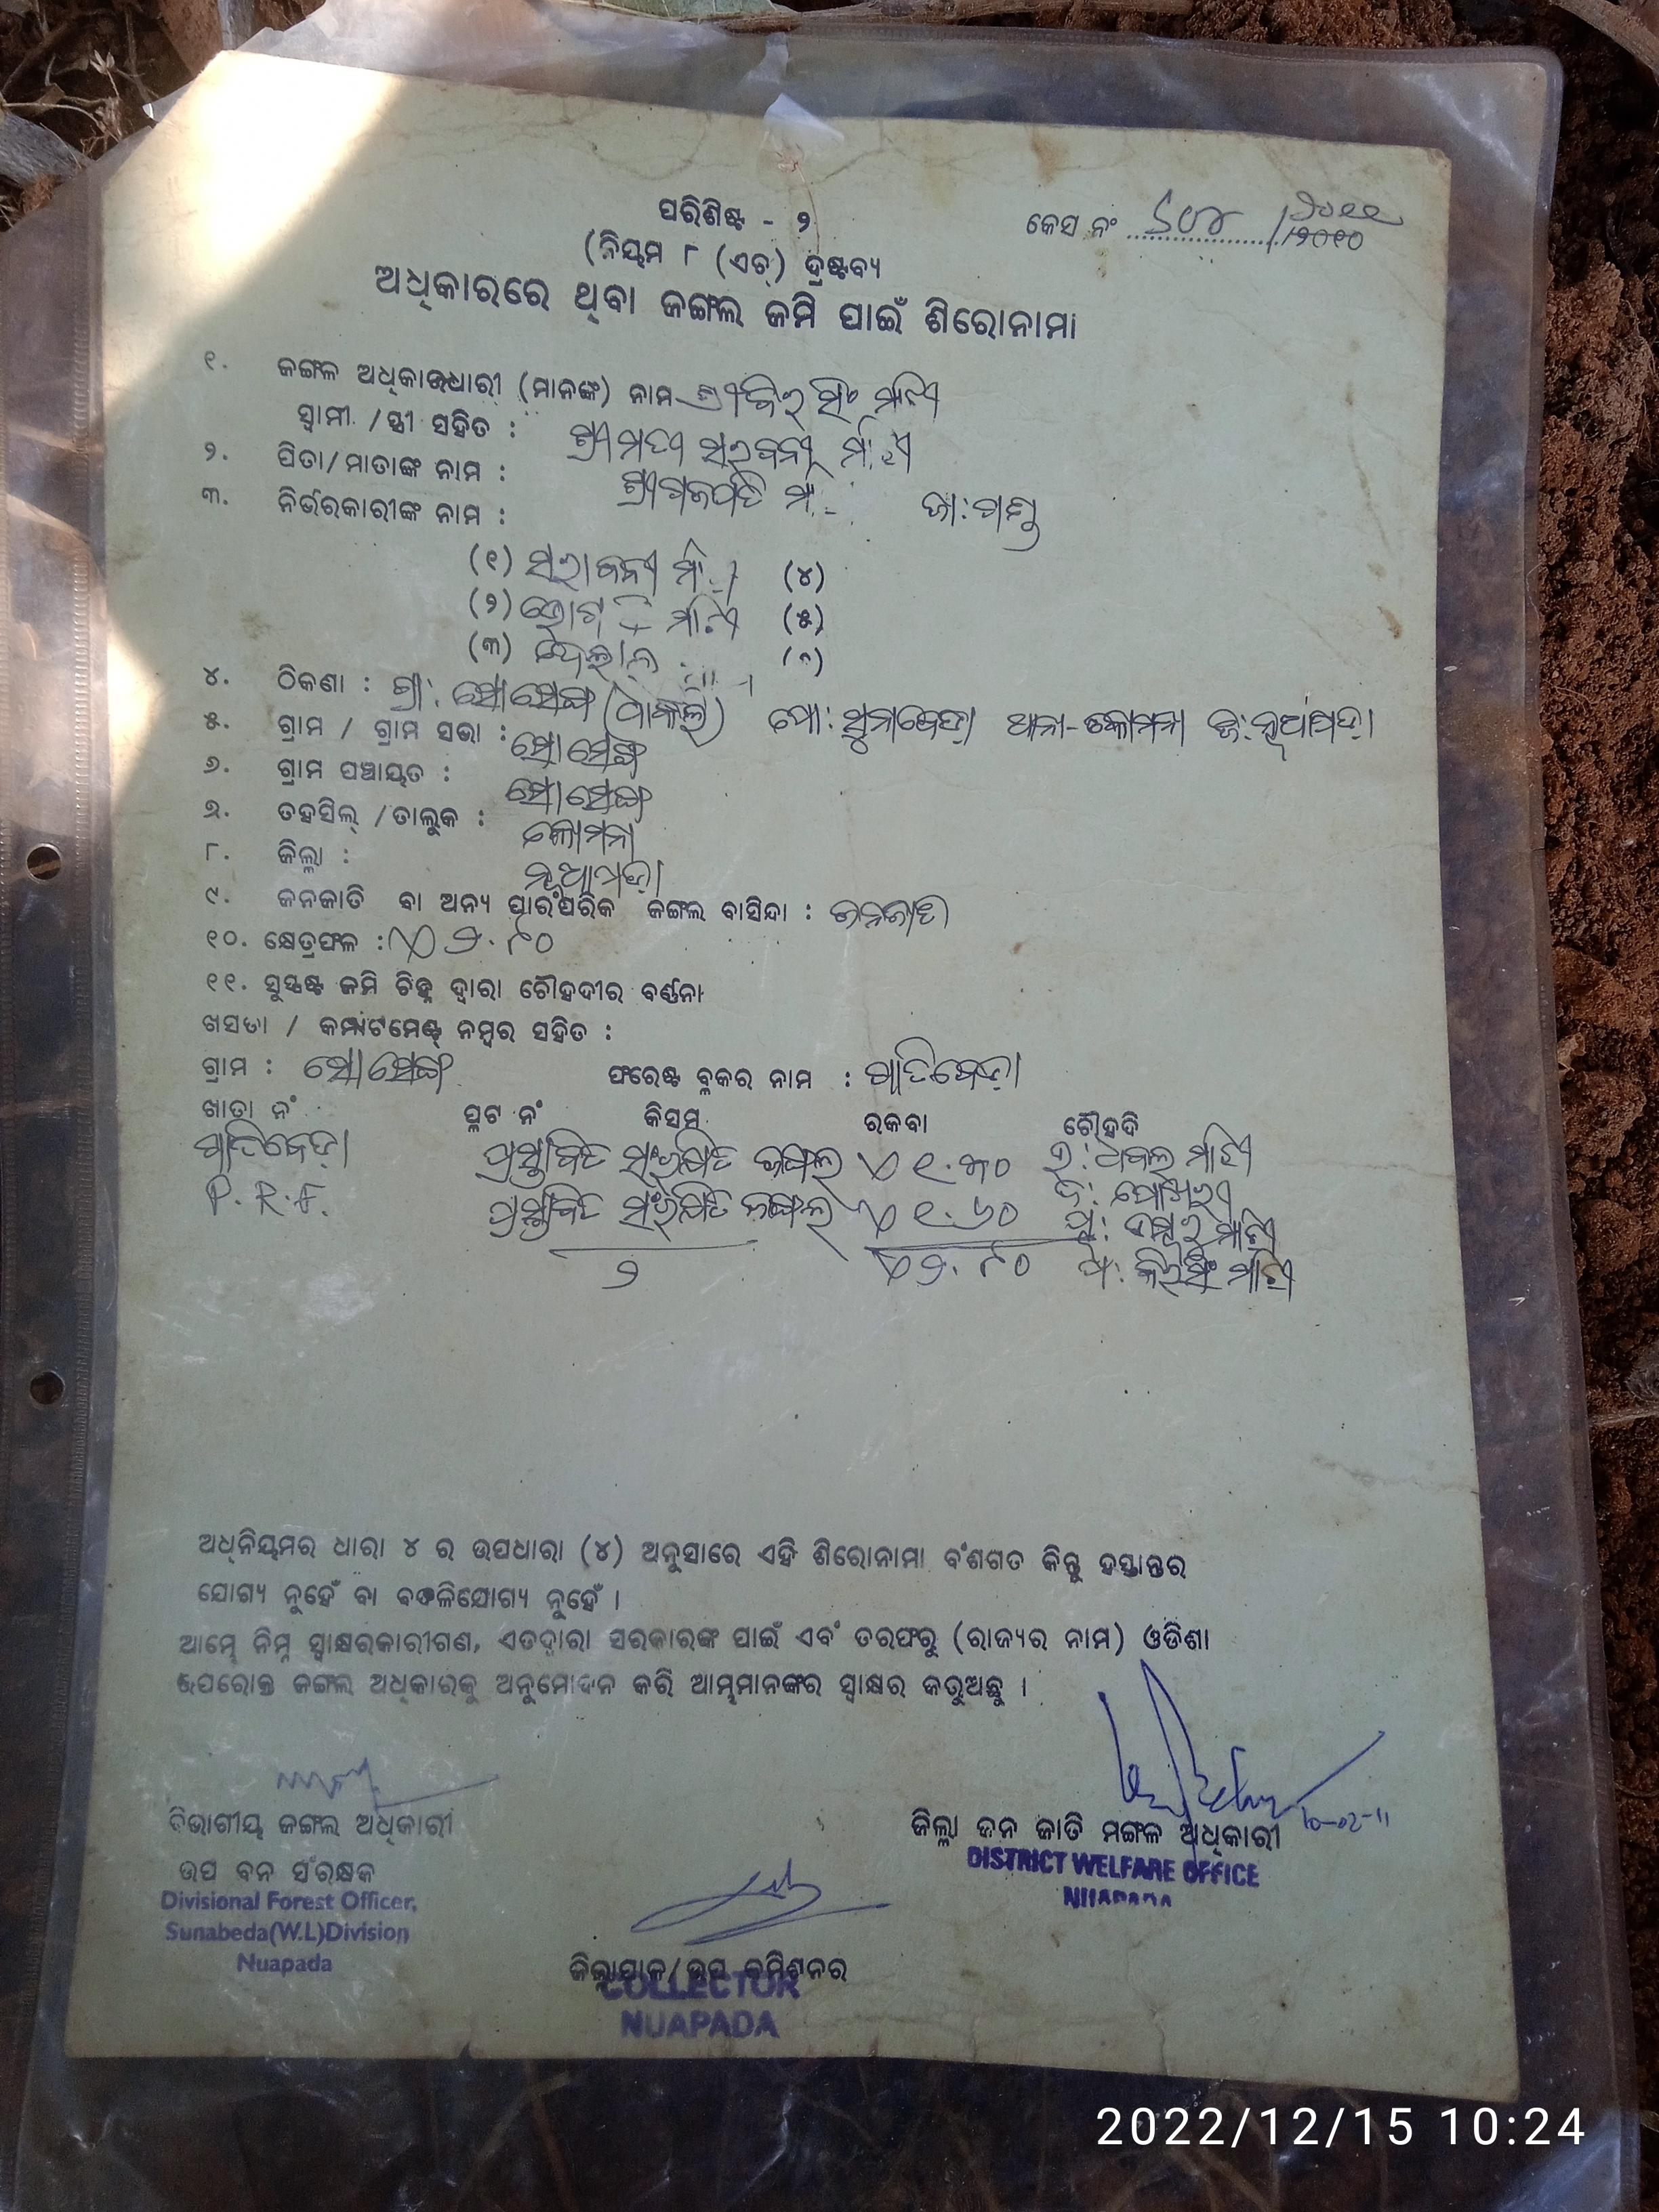 ପରିଶିଷ୍ଟ - ୨
କେସ ନଂ ୨୦୧୦
(ନିୟମ ୮ (ଏଚ୍) ଦ୍ରଷ୍ଟବ୍ୟ
ଅଧିକାରରେ ଥିବା ଜଙ୍ଗଲ ଜମି ପାଇଁ ଶିରୋନାମା
୧. ଜଙ୍ଗଳ ଅଧିକାରଧାରୀ (ମାନଙ୍କ) ନାମ
ସ୍ୱାମୀ / ସ୍ତ୍ରୀ ସହିତ : ଶ୍ରୀମତୀ
୨. ପିତା/ମାତାଙ୍କ ନାମ : ଶ୍ରୀ ଗଜପତି
୩. ନିର୍ଭରକାରୀଙ୍କ ନାମ : ଜା: ଗଣ୍ଡ
(୧) ସରୋଜନୀ (୪)
(୨) ମାଝୀ (୫)
(୩)
୪. ଠିକଣା : ଗ୍ରା: ସୋସେଙ୍ଗ ପୋ: ସୁନାବେଡ଼ା ଥାନା-କୋମନା ଜି: ନୂଆପଡ଼ା
୫. ଗ୍ରାମ / ଗ୍ରାମ ସଭା : ସୋସେଙ୍ଗ
୬. ଗ୍ରାମ ପଞ୍ଚାୟତ : ସୋସେଙ୍ଗ
୭. ତହସିଲ୍ / ତାଲୁକ : କୋମନା
୮. ଜିଲ୍ଲା : ନୂଆପଡ଼ା
୯. ଜନଜାତି ବା ଅନ୍ୟ ପାରଂପରିକ ଜଙ୍ଗଲ ବାସିନ୍ଦା : ଜନଜାତି
୧୦. କ୍ଷେତ୍ରଫଳ : ୨.୮୦
୧୧. ସୁସ୍ପଷ୍ଟ ଜମି ଚିହ୍ନ ଦ୍ୱାରା ଚୌହଦୀର ବର୍ଣ୍ଣନା
ଖସଡା / କମ୍ପାର୍ଟମେଣ୍ଟ ନମ୍ବର ସହିତ :
ଗ୍ରାମ : ସୋସେଙ୍ଗ ଫରେଷ୍ଟ ବ୍ଲକର ନାମ : ପାତିବେଡ଼ା
ଖାତା ନଂ ପ୍ଲଟ ନଂ କିସମ ରକବା ଚୌହଦି
ପାତିବେଡ଼ା ପ୍ରସ୍ତାବିତ ସଂରକ୍ଷିତ ଜଙ୍ଗଲ ଉ: ଧବଲ ମାଝୀ
P.R.F. ପ୍ରସ୍ତାବିତ ସଂରକ୍ଷିତ ଜଙ୍ଗଲ ୧.୬୦ ଦ: ପୋଖରୀ
୨ ୨.୮୦ ମାଝୀ
ଅଧିନିୟମର ଧାରା ୪ ର ଉପଧାରା (୪) ଅନୁସାରେ ଏହି ଶିରୋନାମା ବଂଶଗତ କିନ୍ତୁ ହସ୍ତାନ୍ତର
ଯୋଗ୍ୟ ନୁହେଁ ବା ବଦଳିଯୋଗ୍ୟ ନୁହେଁ ।
ଆମ୍ଭେ ନିମ୍ନ ସ୍ୱାକ୍ଷରକାରୀଗଣ, ଏତଦ୍ୱାରା ସରକାରଙ୍କ ପାଇଁ ଏବଂ ତରଫରୁ (ରାଜ୍ୟର ନାମ) ଓଡିଶା
ଉପରୋକ୍ତ ଜଙ୍ଗଲ ଅଧିକାରକୁ ଅନୁମୋଦନ କରି ଆମ୍ଭମାନଙ୍କର ସ୍ୱାକ୍ଷର କରୁଅଛୁ ।
ବିଭାଗୀୟ ଜଙ୍ଗଲ ଅଧିକାରୀ
ଉପ ବନ ସଂରକ୍ଷକ
Divisional Forest Officer,
Sunabeda(W.L)Division
Nuapada
ଜିଲ୍ଲା ଜନ ଜାତି ମଙ୍ଗଳ ଅଧିକାରୀ
DISTRICT WELFARE OFFICE
NUAPADA
ଜିଲ୍ଲାପାଳ/ଉପ କମିଶନର
COLLECTOR
NUAPADA
2022/12/15 10:24